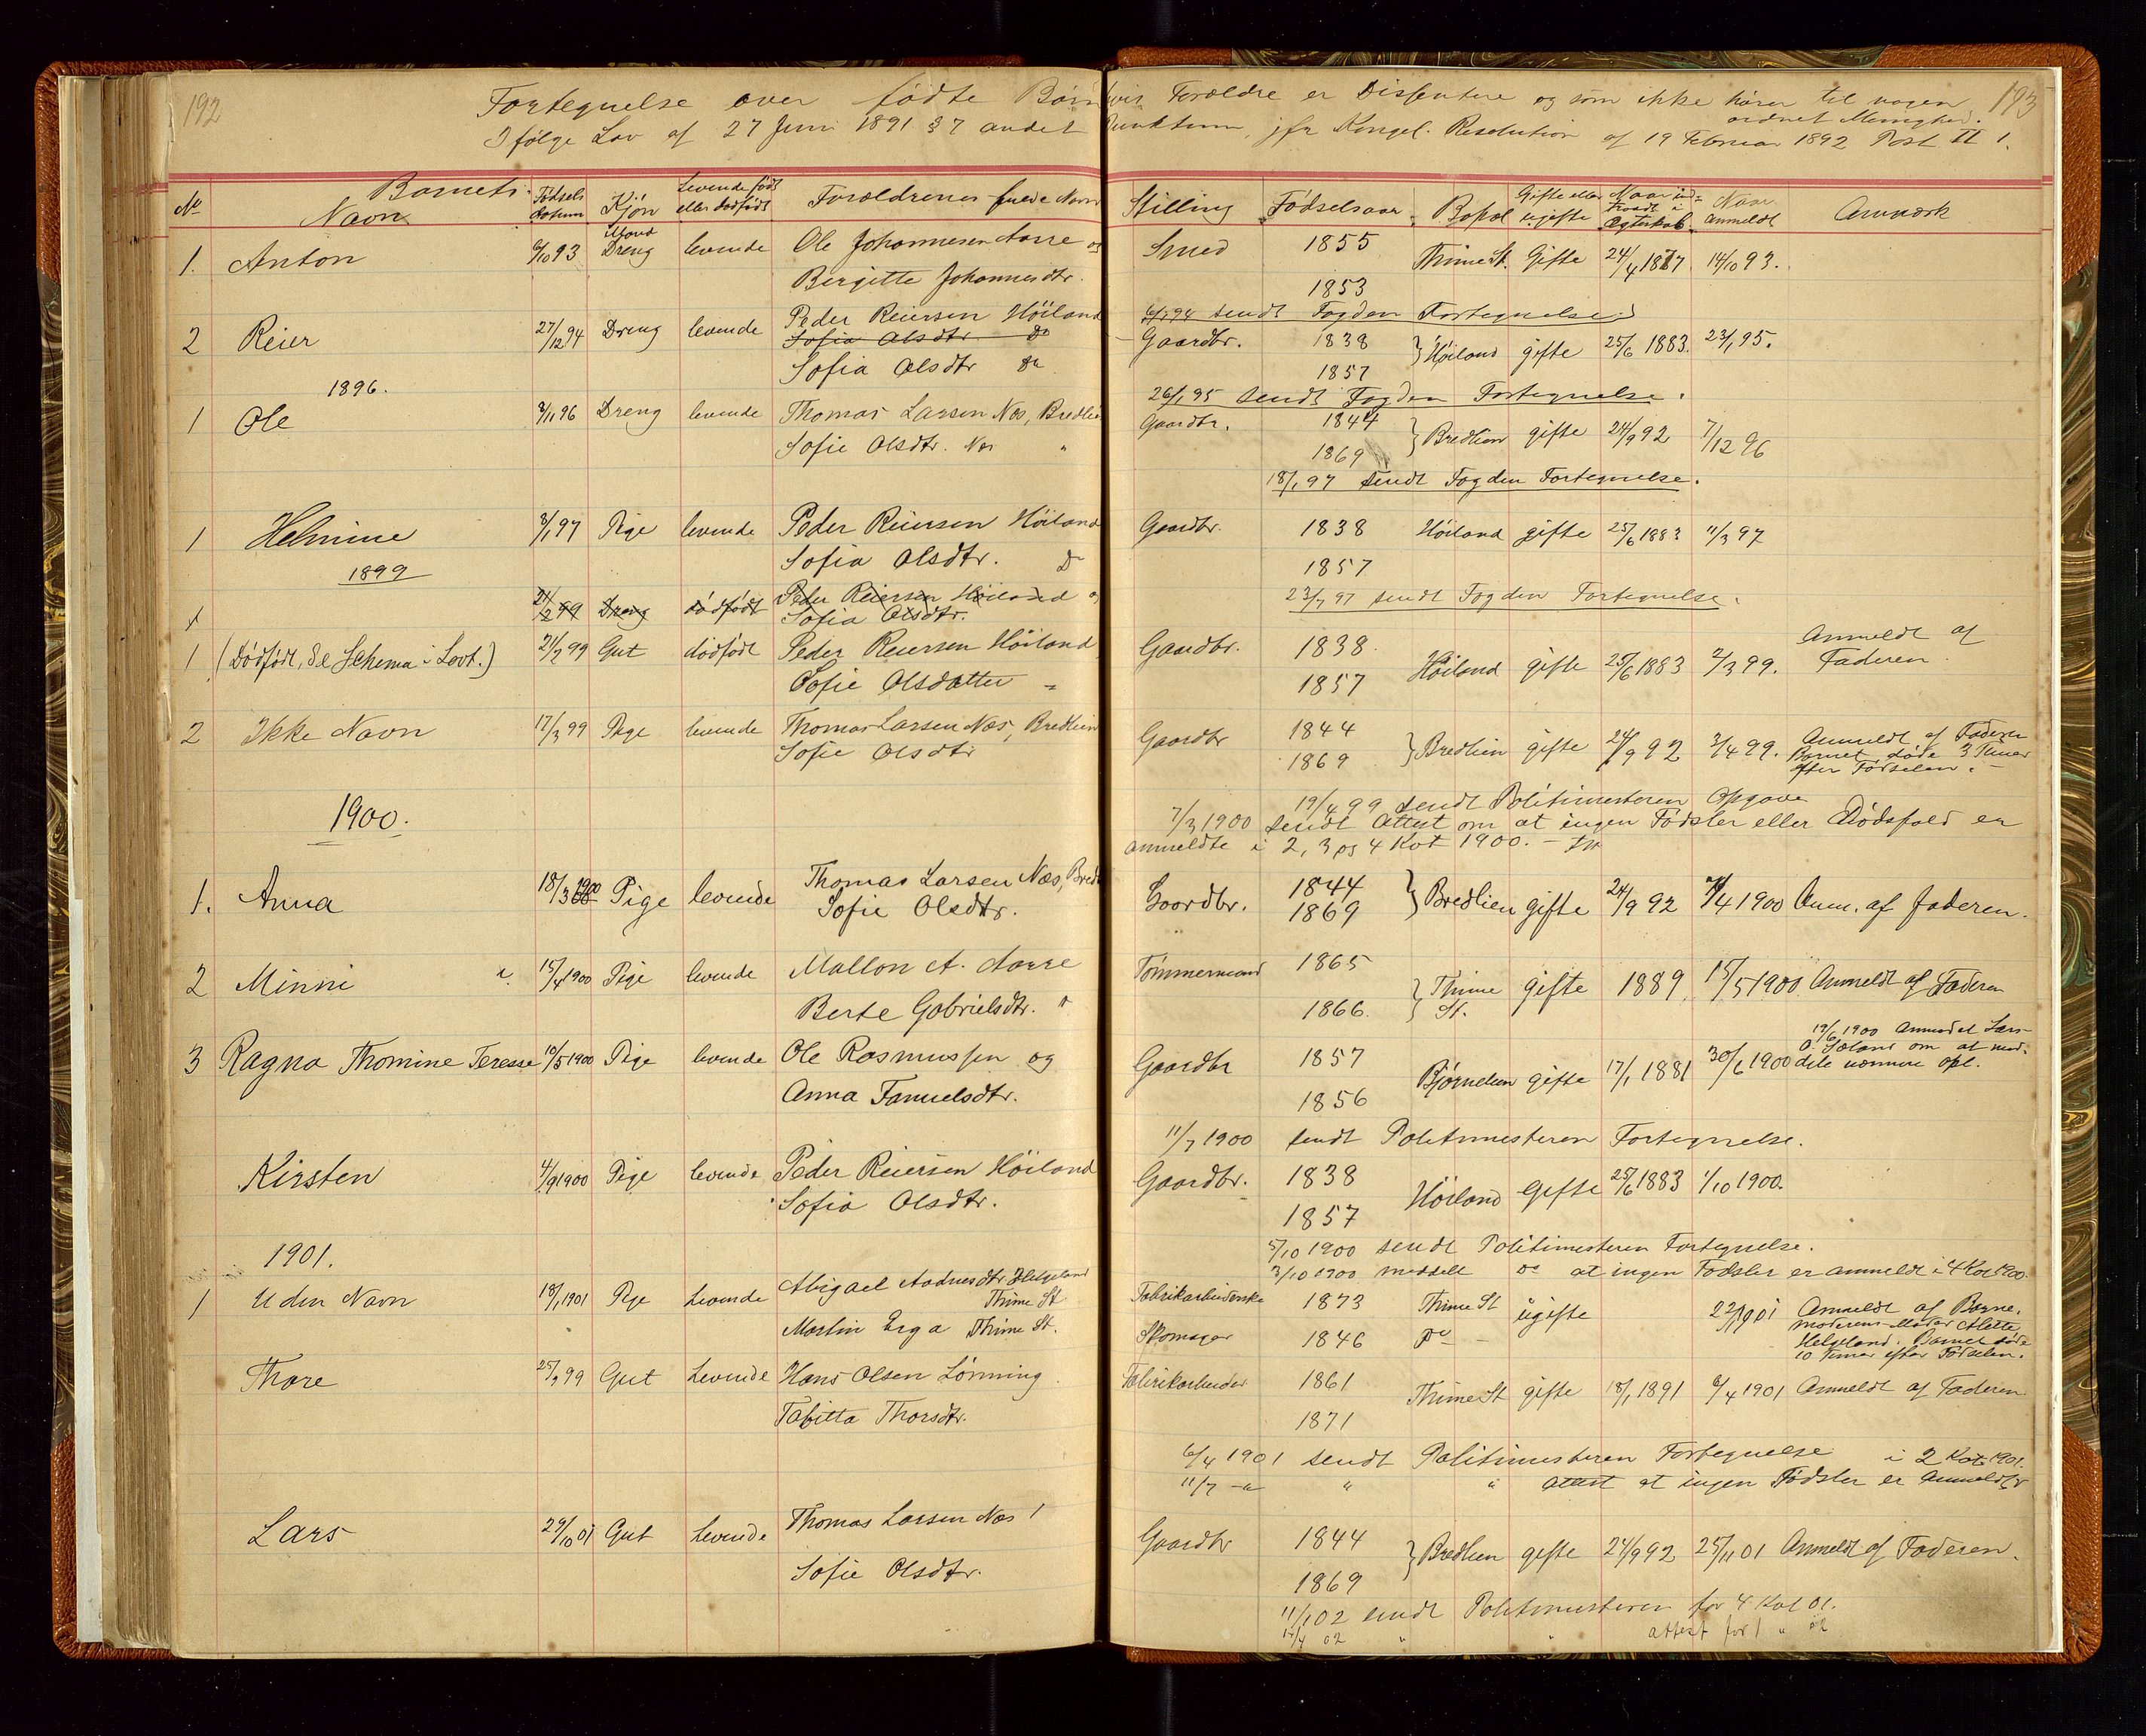 192
Fortegnelse over fødte Børn hvis Forældre er Dissentere og som ikke hører til nogen
ordnet Menighed.
193
Ifølge Lov af 27 Juni 1891 § 7 andet Punktum, jfr Kongel. Resolution af 19 Februar 1892 Post II 1.
No Barnets Navn Fødsels datum Kjøn Levende født eller dødfødt Forældrenes fulde Navn Stilling Fødselsaar Bopæl Gifte eller ugifte Naar ind= traadt i Ægteskab Naar anmeldt Anmærk
1. Anton 6/10 93 Dreng levende Ole Johannesen Aarre og Smed 1855 Thime St. Gifte 24/4 1877 14/10 93.
Birgitte Johannesdtr. 1853
94 sendt Fogden Fortegnelse
2 Reier 27/12 94 Dreng levende Peder Reiersen Höiland Gaardbr. 1838 Höiland gifte 25/6 1883. 23/1 95.
Sofia Olsdtr Do
Sofia Olsdtr Do 1857
1896.
26/1 95 sendt Fogden Fortegnelse.
1 Ole 3/11 96 Dreng levende Thomas Larsen Næs, Bredlien Gaardbr. 1844 Bredlien gifte 24/9 92 7/12 96
Sofie Olsdtr. Næs " 1869
18/1 97 sendt Fogden Fortegnelse.
1 Helmine 3/1 97 Pige levende Peder Reiersen Höiland Gaardbr. 1838 Höiland gifte 25/6 1883 11/3 97
Sofia Olsdtr. Do 1857
1899
23/7 97 sendt Fogden Fortegnelse.
1 21/2 99 Dreng dødfødt Peder Reiersen Höiland og
Sofia Olsdtr.
1 (Dødfødt, se Schema i Lovt.) 21/2 99 Gut dødfødt Peder Reiersen Höiland Gaardbr. 1838. Höiland gifte 25/6 1883 2/3 99. Anmeldt af
Faderen.
Sofie Olsdatter " 1857
2 Ikke Navn 17/3 99 Pige levende Thomas Larsen Næs, Bredlien Gaardbr 1844 Bredlien gifte 24/9 92 3/4 99. Anmeldt af Faderen
Sofie Olsdtr 1869 Barnet døde 3 Timer
efter Fødselen.
1900.
19/4 99 sendt Politimesteren Opgave
7/3 1900 sendt Attest om at ingen Fødsler eller Dødsfald er
anmeldte i 2, 3 og 4 Kvt 1900.
1. Anna 18/3 1900 Pige levende Thomas Larsen Næs, Bredl Gaardbr. 1844 Bredlien gifte 24/9 92 /4 1900 Anm. af Faderen.
Sofie Olsdtr. 1869
2 Minni 15/4 1900 Pige levende Mallon A. Aarre Tömmermand 1865 Thime St. gifte 1889 15/5 1900 Anmeldt af Faderen
Berte Gabrielsdtr. " 1866.
3 Ragna Thomine Teresse 10/5 1900 Pige levende Ole Rasmussen og Gaardbr 1857 Bjørnelien gifte 17/1 1881 30/6 1900 19/6 1900 Anmodet Lars
O. Sæland om at med-
dele nærmere Opl.
Anna Samuelsdtr. 1856
11/7 1900 sendt Politimesteren Fortegnelse.
Kirsten 4/9 1900 Pige levende Peder Reiersen Höiland Gaardbr. 1838 Höiland Gifte 25/6 1883 1/10 1900.
Sofia Olsdtr. 1857
1901.
5/10 1900 sendt Politimesteren Fortegnelse.
3/10 1900 meddelt Do at ingen Fødsler er anmeldt i 4 Kvt 1900.
1 Uden Navn 18/1 1901 Pige Levende Abigael Aadnesdtr. Helgeland Thime St. Fabrikarbeiderske 1873 Thime St ugifte 22/1 1901 Anmeldt af Barne-
moderens Moder Alette
Helgeland. Barnet døde
10 Timer efter Fødselen.
Martin Erga Thime St. Skomager 1846 Do
Thore 25/ 99 Gut Levende Hans Olsen Lönning Fabrikarbeider 1861 Thime St gifte 18/1 1891 6/4 1901 Anmeldt af Faderen
Tabitta Thorsdtr. 1871
6/4 1901 sendt Politimesteren Fortegnelse
11/7 " " " Attest at ingen Fødsler er Anmeldt i 2 Kvt 1901.
Lars 29/10 01 Gut Levende Thomas Larsen Næs Gaardbr 1844 Bredlien gifte 24/9 92 25/11 01 Anmeldt af Faderen.
Sofie Olsdtr. 1869
11/1 02 sendt Politimesteren for 4 Kvt 01.
/4 02 " " attest for 1 " 02